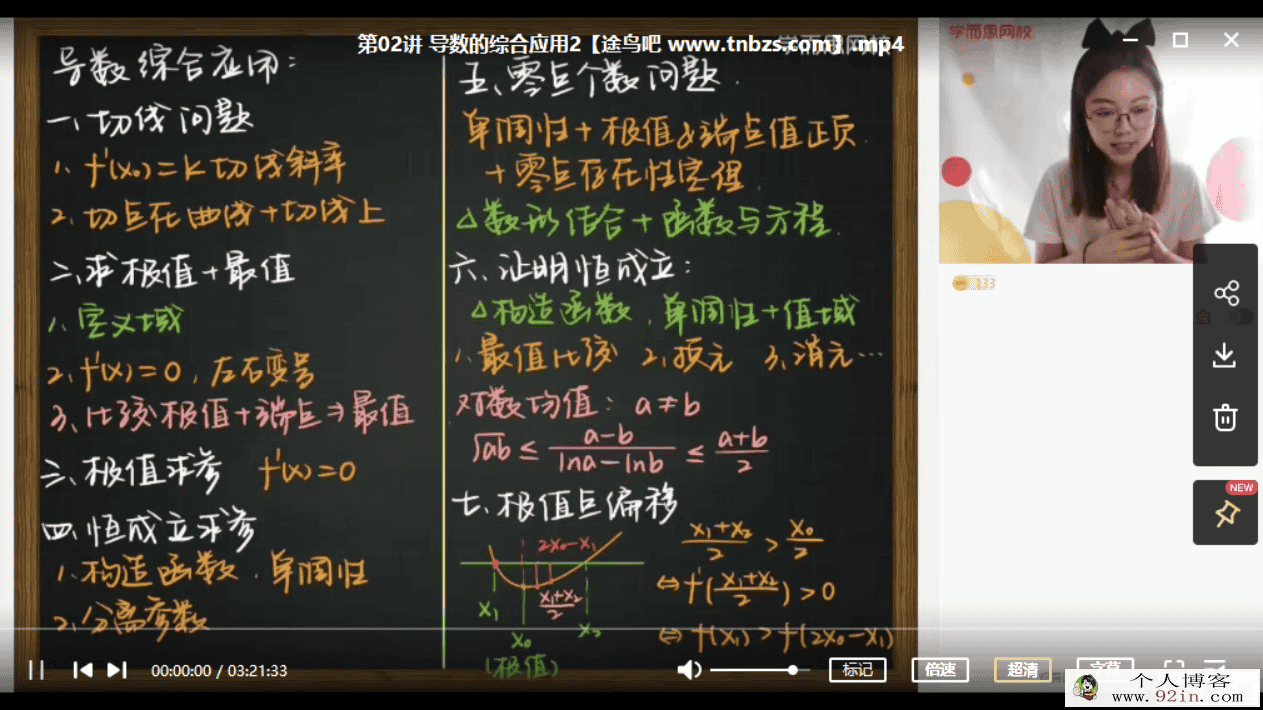 第02讲 导数的综合应用2【途鸟吧 www.tnbzs.com】.mp4
学而思网校
导数综合应用:
一、切线问题
1. f'(x₀)=k 切线斜率
2. 切点在曲线+切线上
二、求极值+最值
1、定义域
2、f'(x)=0,左右变号
3、比较极值+端点⇒最值
三、极值求参 f'(x)=0
四、恒成立求参
1、构造函数.单调性
2、分离参数
五、零点个数问题.
单调性+极值&端点值正负.
+零点存在性定理.
△数形结合+函数与方程.
六、证明恒成立:
△构造函数,单调性+值域
1、最值比较 2、换元 3、消元…
对数均值: a≠b
√ab ≤ (a-b)/(lna-lnb) ≤ (a+b)/2
七、极值点偏移
2x₀-x₁
x₁
(x₁+x₂)/2
x₂
x₀
(极值)
(x₁+x₂)/2 > x₀/2
⇔f'((x₁+x₂)/2)>0
⇔f(x₁)>f(2x₀-x₁)
学而思网校
133
NEW
00:00:00 / 03:21:33
标记
倍速
超清
字幕
个人博客
www.92in.com